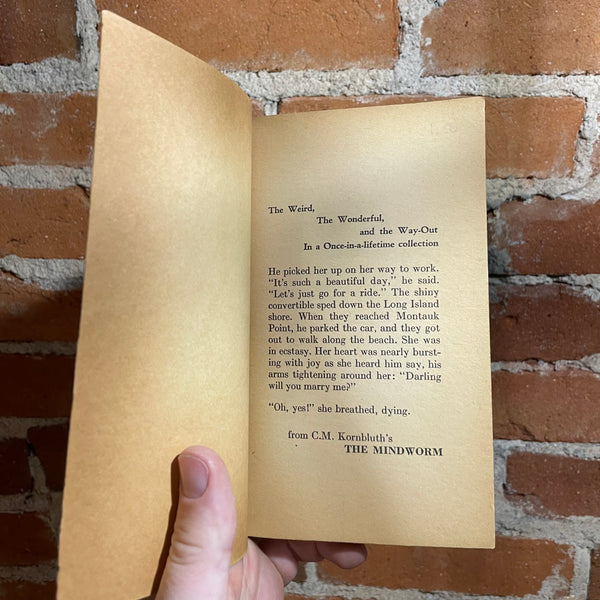 The Weird,
The Wonderful,
and the Way-Out
In a Once-in-a-lifetime collection
He picked her up on her way to work.
"It's such a beautiful day," he said.
"Let's just go for a ride." The shiny
convertible sped down the Long Island
shore. When they reached Montauk
Point, he parked the car, and they got
out to walk along the beach. She was
in ecstasy. Her heart was nearly burst-
ing with joy as she heard him say, his
arms tightening around her: "Darling
will you marry me?"
"Oh, yes!" she breathed, dying.
from C.M. Kornbluth's
THE MINDWORM